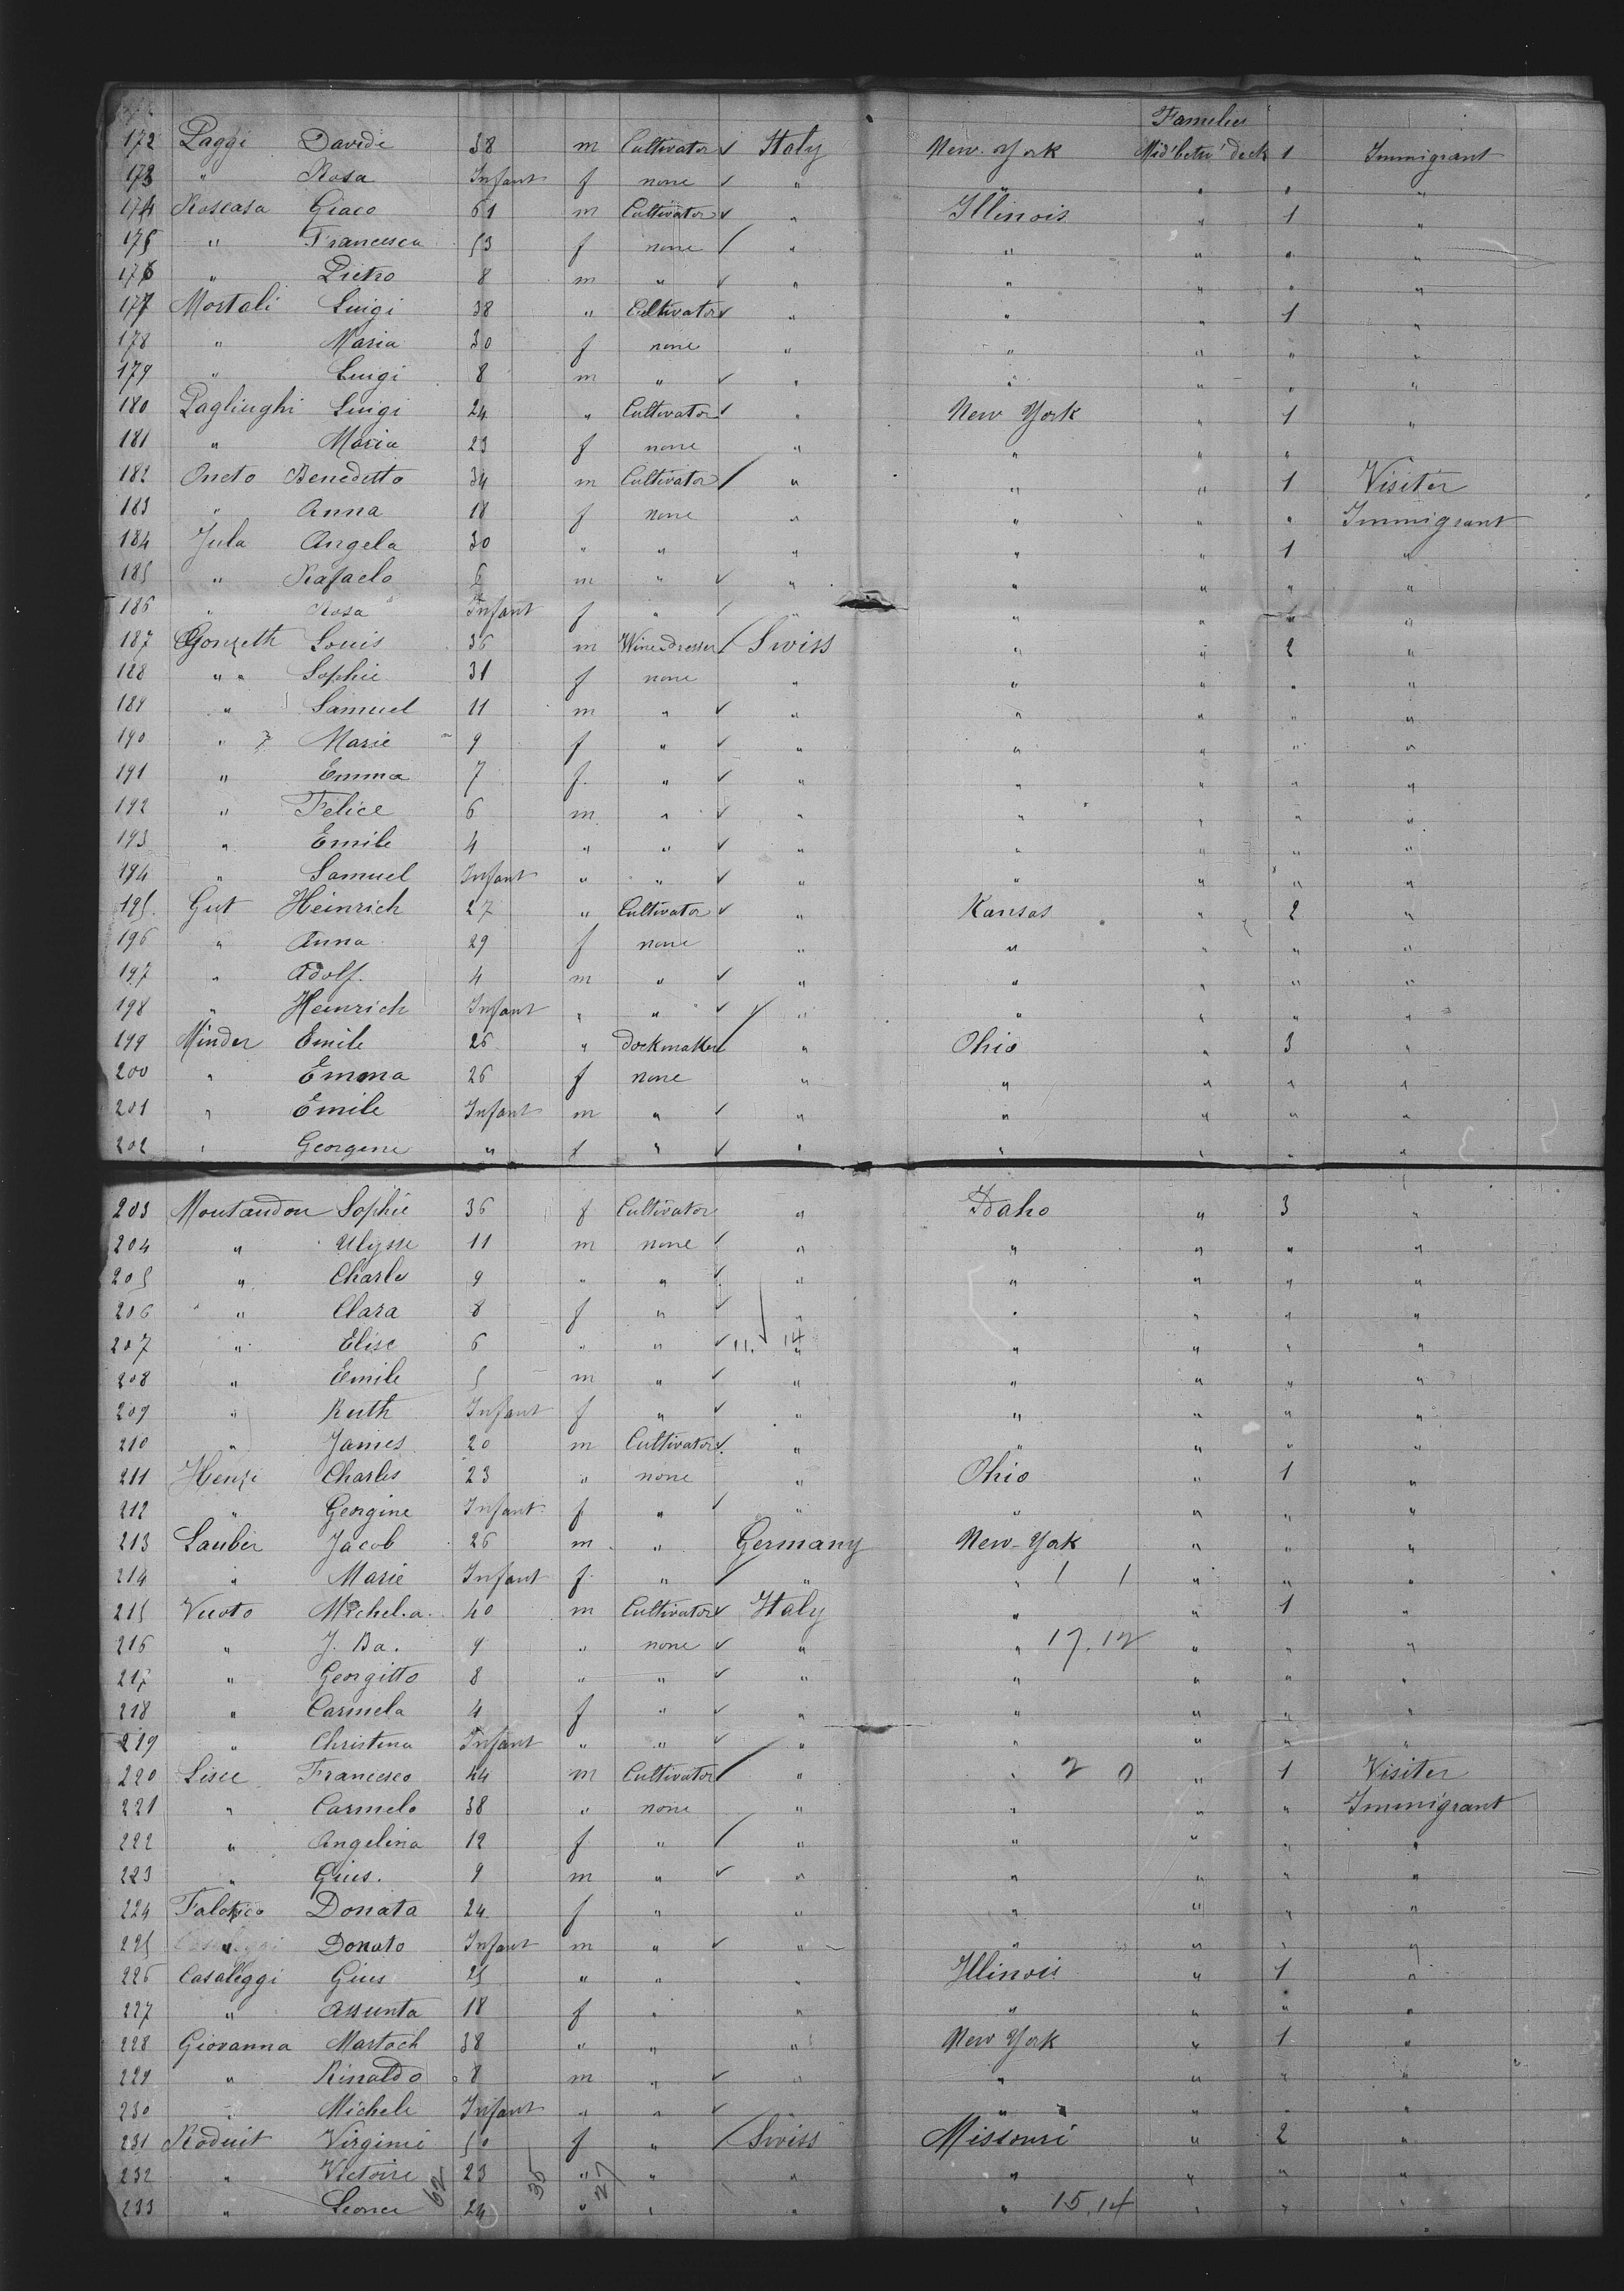 Families
172 Paggi Davide 38 m Cultivator ✓ Italy New York Mid' betw' deck 1 Immigrant
173 " Rosa Infant f none ✓ " " " " "
174 Roscasa Giaco 61 m Cultivator ✓ " Illinois " 1 "
175 " Francesca 53 f none / " " " " "
176 " Pietro 8 m " ✓ " " " " "
177 Mortali Luigi 38 " Cultivator ✓ " " " 1 "
178 " Maria 30 f none " " " " "
179 " Luigi 8 m " ✓ " " " " "
180 Pagliughi Luigi 24 " Cultivator ✓ " New York " 1 "
181 " Maria 23 f none " " " "
182 Oneto Benedetto 34 m Cultivator / " " " 1 Visiter
183 " Anna 18 f none " " " " Immigrant
184 Jula Angela 30 " " " " " 1 "
185 " Rafaelo 6 m " ✓ " " " " "
186 " Rosa Infant f " / " " " " "
187 Gonzeth Louis 36 m Winedresser / Swiss " " 2 "
188 " " Sophie 31 f none " " " " "
189 " Samuel 11 m " ✓ " " " " "
190 " Marie 9 f " ✓ " " " " "
191 " Emma 7 f " ✓ " " " " "
192 " Felice 6 m " ✓ " " " " "
193 " Emile 4 " " ✓ " " " " "
194 " Samuel Infant " " ✓ " " " " "
195 Gut Heinrich 27 " Cultivator ✓ " Kansas " 2 "
196 " Anna 29 f none " " " " "
197 " Adolf. 4 m " ✓ " " " " "
198 " Heinrich Infant " " ✓ " " " " "
199 Minder Emile 26 " Dockmaker / " Ohio " 3 "
200 " Emma 26 f none " " " " "
201 " Emile Infant m " ✓ " " " " "
202 " Georgene " f " ✓ " " " " "
203 Montandon Sophie 36 f Cultivator " Idaho " 3 "
204 " Ulysse 11 m none ✓ " " " " "
205 " Charle 9 " " ✓ " " " " "
206 " Clara 8 f " ✓ " " " " "
207 " Elise 6 " " ✓ 11. 14 " " " " "
208 " Emile 5 m " ✓ " " " " "
209 " Ruth Infant f " ✓ " " " " "
210 " James 20 m Cultivator ✓ " " " " "
211 Henzi Charles 23 " none " Ohio " 1 "
212 " Georgine Infant f " ✓ " " " " "
213 Lauber Jacob 26 m " Germany New-York " " "
214 " Marie Infant f " / " " 1 1 " " "
215 Vuoto Michel.a. 40 m Cultivator ✓ Italy " " 1 "
216 " J. Ba. 9 " none ✓ " " 17.12 " " "
217 " Georgitto 8 " " ✓ " " " " "
218 " Carmela 4 f " ✓ " " " " "
219 " Christina Infant " " ✓ " " " " "
220 Lisce Francesco 44 m Cultivator / " " 2 0 " 1 Visiter
221 " Carmelo 38 " none " " " " Immigrant
222 " Angelina 12 f " / " " " " "
223 " Gius. 9 m " ✓ " " " " "
224 Donata 24 f " " " " " "
225 " Donato Infant m " ✓ " " " " "
226 Casaleggi Gius 25 " " " Illinois " 1 "
227 " Assunta 18 f " " " " " "
228 Giovanna Martoch 38 " " " New York " 1 "
229 " Rinaldo 8 m " ✓ " " " " "
230 " Michele Infant " " ✓ " " " " "
231 Roduit Virginie 50 f " / Swiss Missouri " 2 "
232 " Victoire 23 " " " " " " "
233 " Leonce 24 " " " " 15.14 " " "
62 35 27